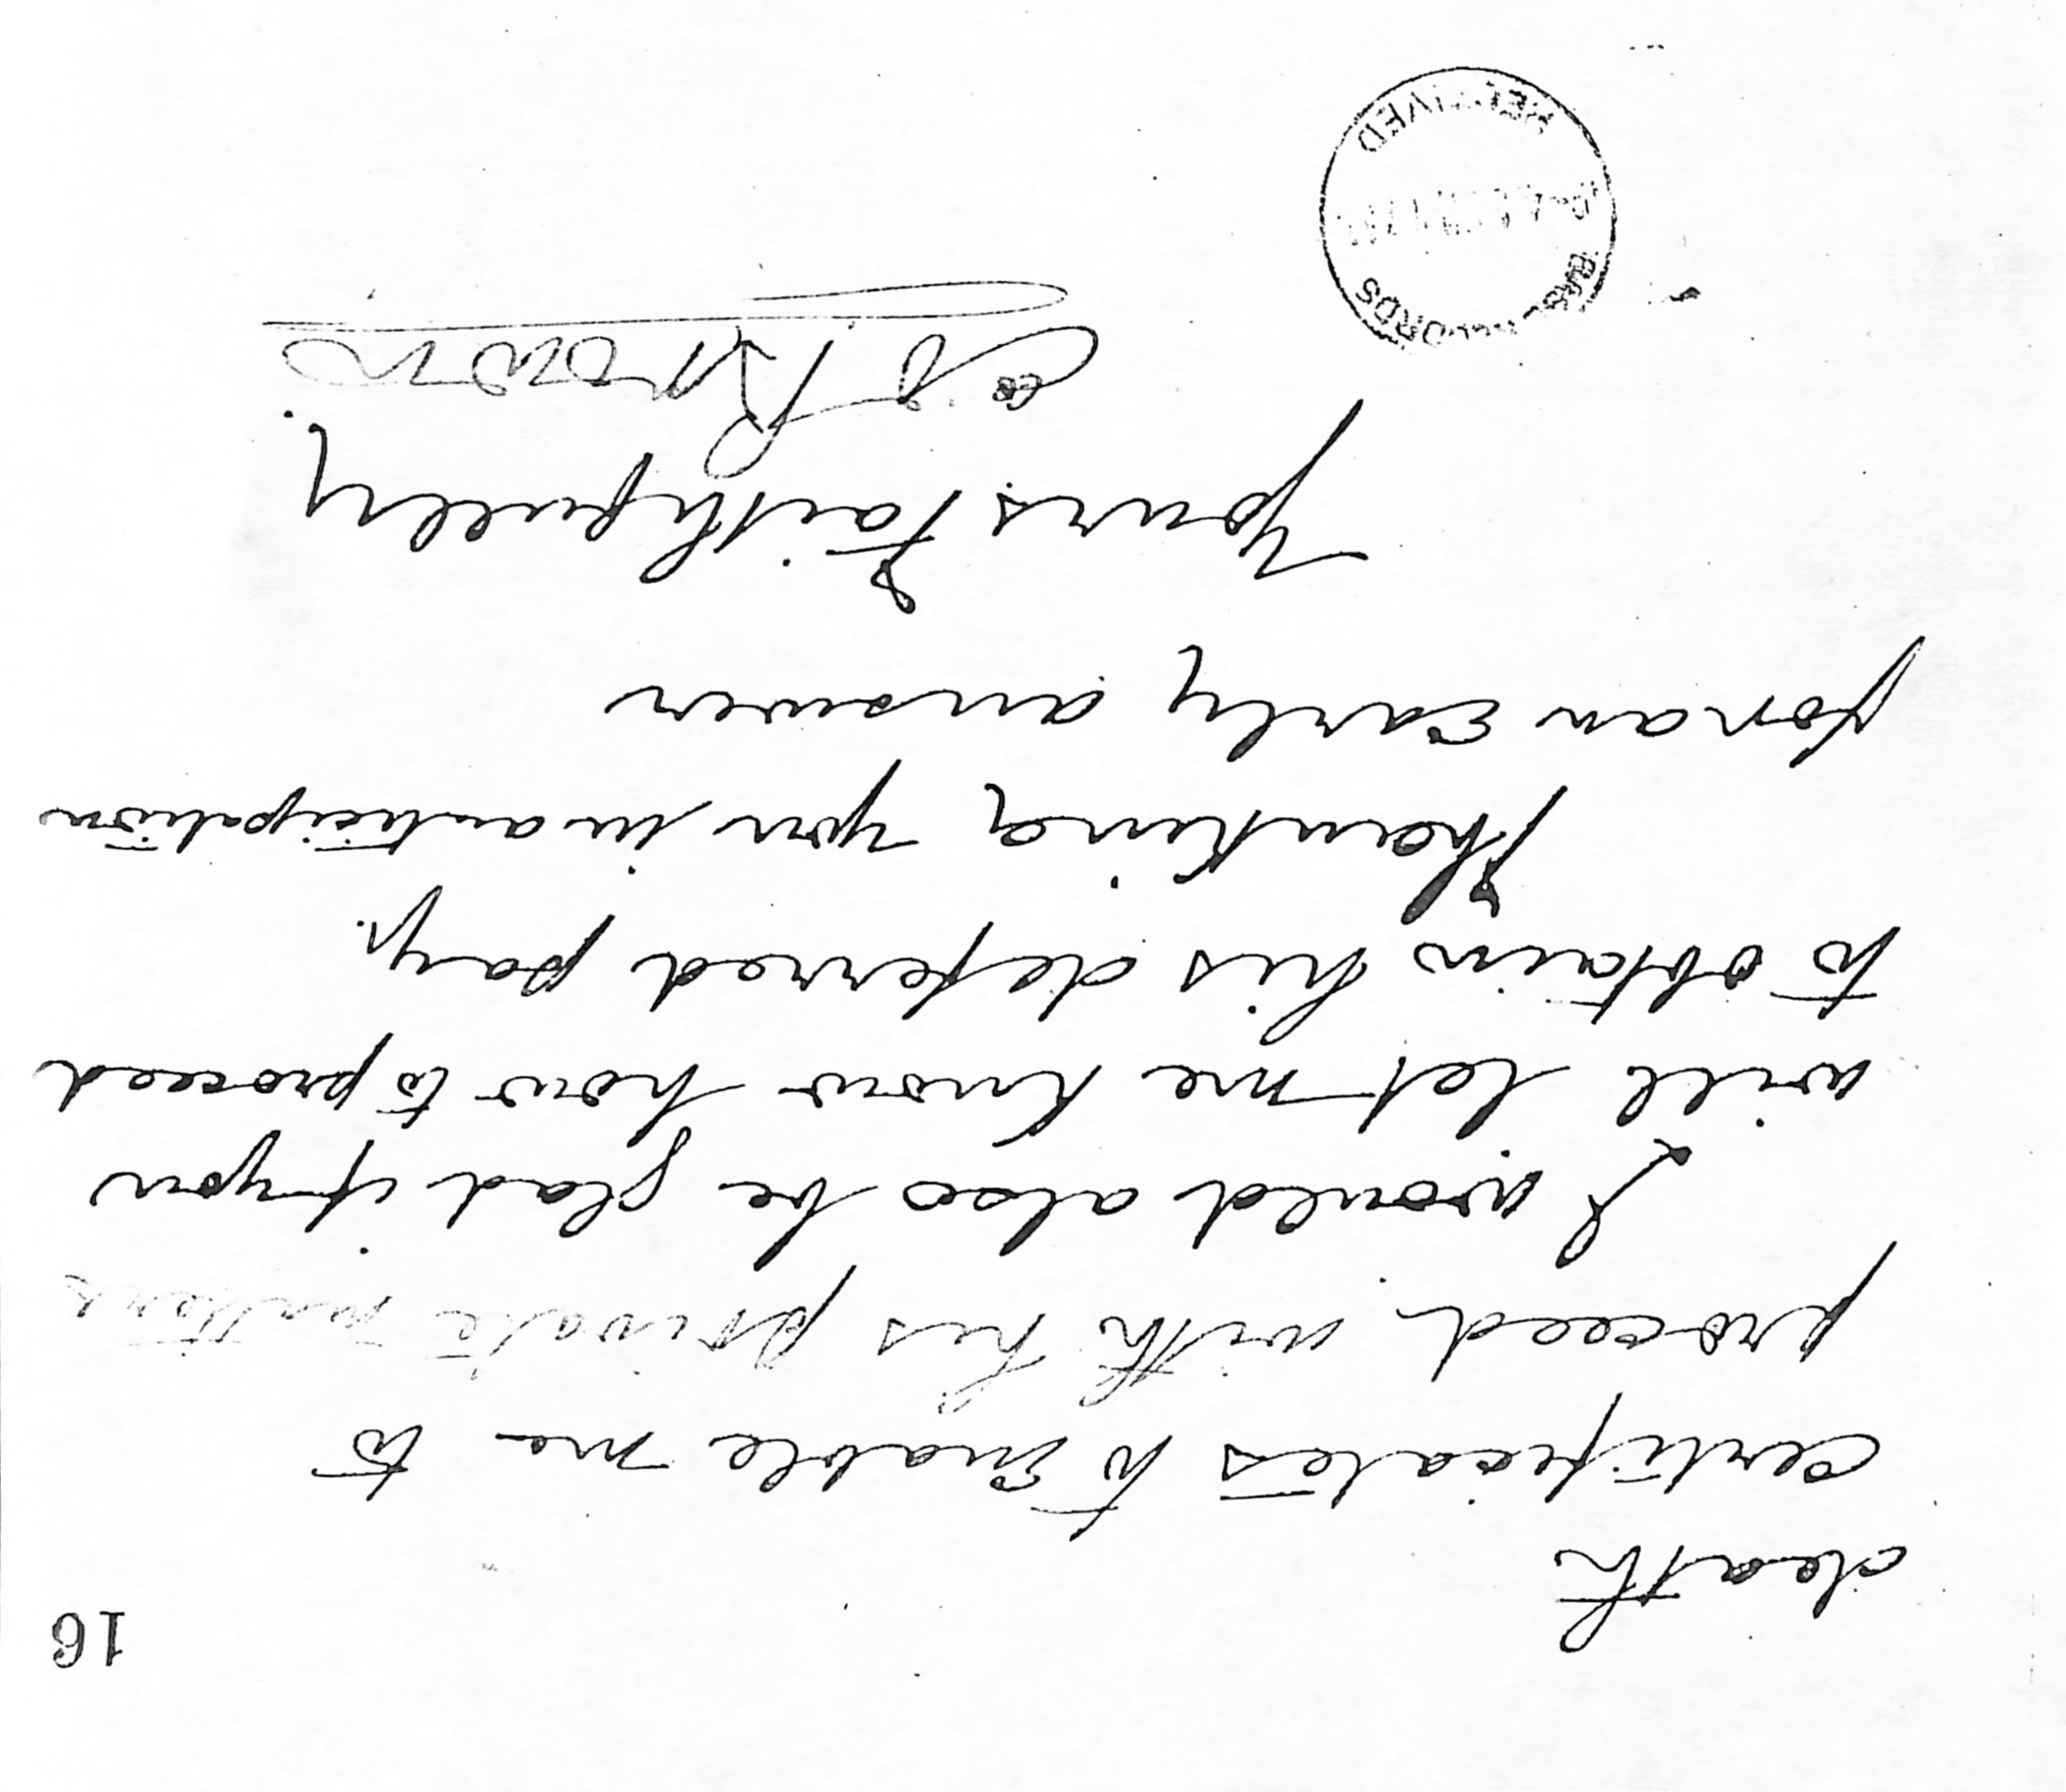 16
death
certificates to enable me to
proceed with his private matters
I would also be glad if you
will let me know how to proceed
to obtain his deferred pay.
Thanking you in anticipation
for an early answer
Yours Faithfully
Brown
RECORDS
RECEIVED